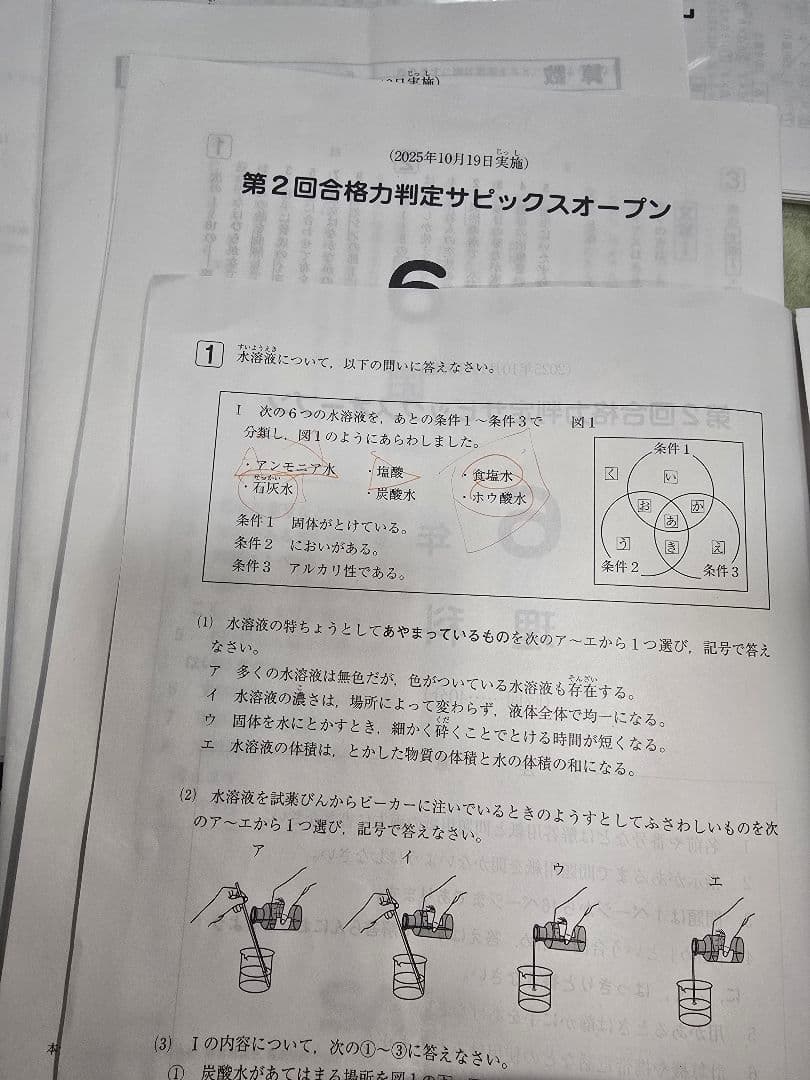 算数
(2025年10月19日実施)
第2回合格力判定サピックスオープン
6
1 水溶液について，以下の問いに答えなさい。
Ⅰ 次の6つの水溶液を，あとの条件1～条件3で
分類し，図1のようにあらわしました。
・アンモニア水 ・塩酸 ・食塩水
・石灰水 ・炭酸水 ・ホウ酸水
条件1 固体がとけている。
条件2 においがある。
条件3 アルカリ性である。
図1
条件1
く い
お か
あ
う き え
条件2 条件3
(1) 水溶液の特ちょうとしてあやまっているものを次のア～エから1つ選び，記号で答え
なさい。
ア 多くの水溶液は無色だが，色がついている水溶液も存在する。
イ 水溶液の濃さは，場所によって変わらず，液体全体で均一になる。
ウ 固体を水にとかすとき，細かく砕くことでとける時間が短くなる。
エ 水溶液の体積は，とかした物質の体積と水の体積の和になる。
(2) 水溶液を試薬びんからビーカーに注いでいるときのようすとしてふさわしいものを次
のア～エから1つ選び，記号で答えなさい。
ア イ ウ エ
(3) Ⅰの内容について，次の①～③に答えなさい。
① 炭酸水があてはまる場所を図1の